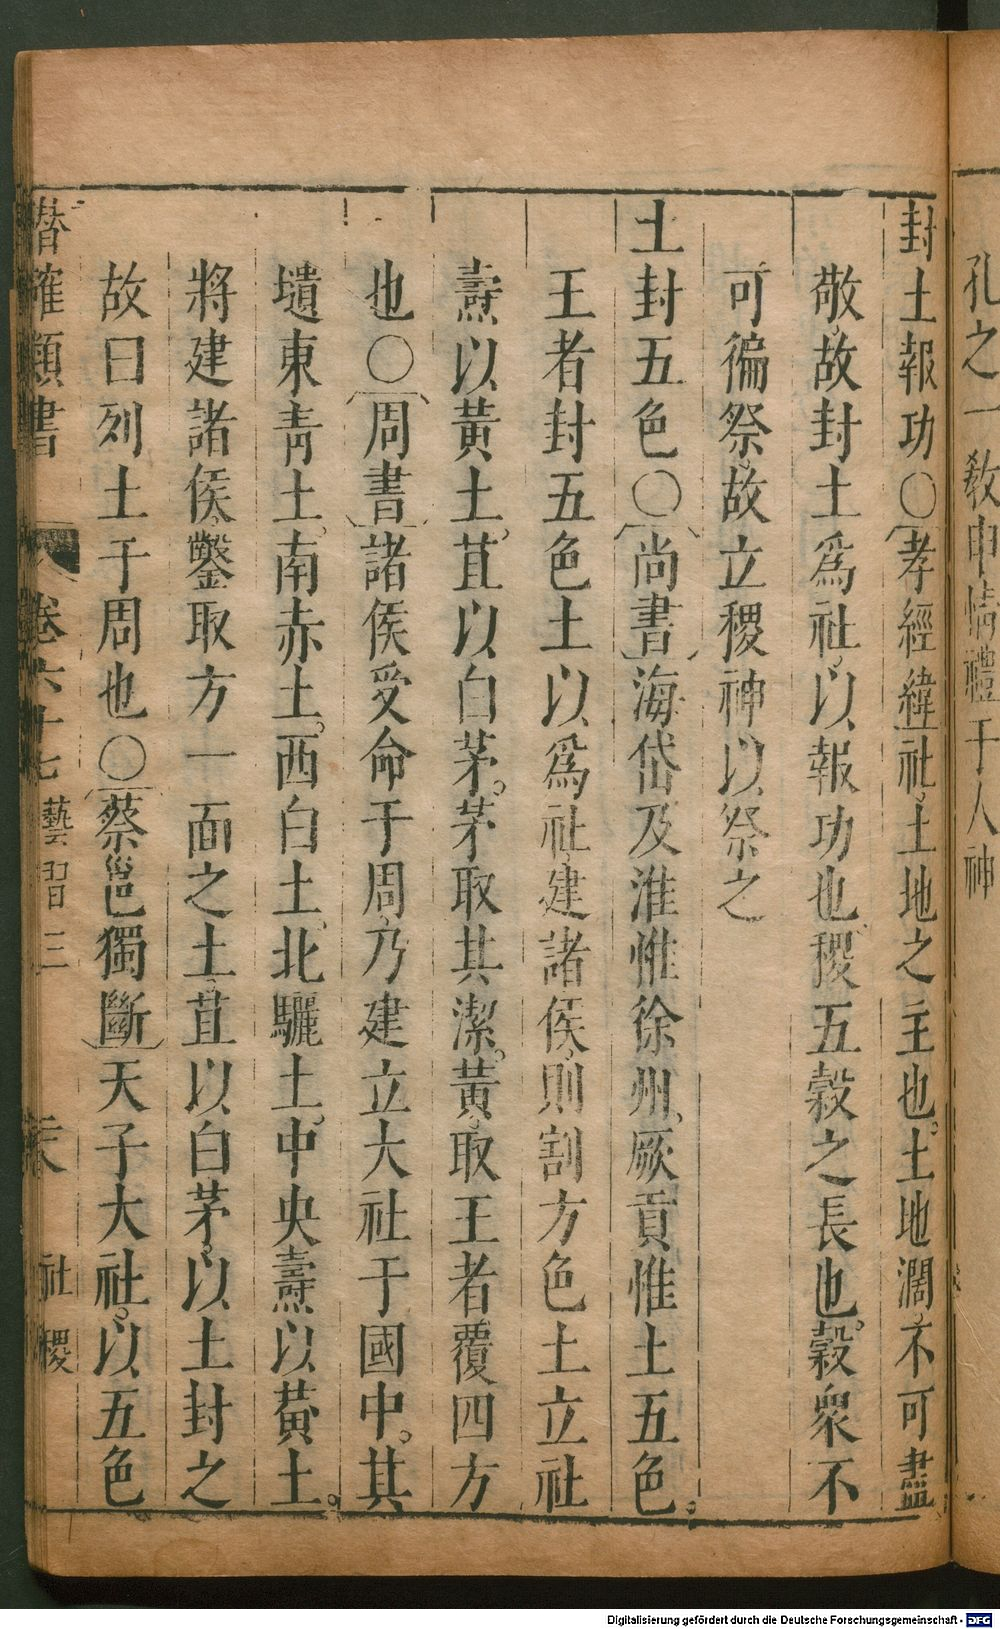 孔之一教申情禮于人神
封土報功〇孝經緯社土地之主也土地濶不可盡
敬故封土爲社以報功也稷五穀之長也穀衆不
可徧祭故立稷神以祭之
土封五色〇尚書海岱及淮惟徐州厥貢惟土五色
王者封五色土以爲社建諸侯則割方色土立社
燾以黃土苴以白茅茅取其潔黃取王者覆四方
也〇周書諸侯受命于周乃建立大社于國中其
壝東靑土南赤土西白土北驪土中央燾以黃土
將建諸侯鑿取方一面之土苴以白茅以土封之
故曰列土于周也〇蔡邕獨斷天子大社以五色
潛確類書 卷六十七 藝習三 社稷
Digitalisierung gefördert durch die Deutsche Forschungsgemeinschaft - DFG